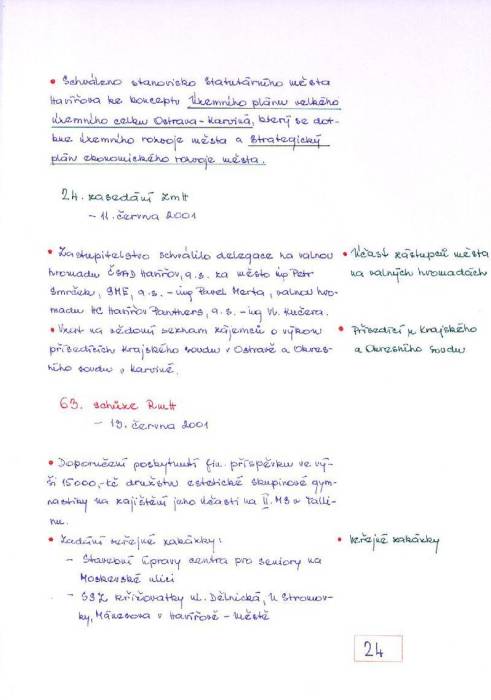 • Schváleno stanovisko Statutárního města
Havířova ke konceptu Územního plánu velkého
územního celku Ostrava-Karviná, který se dot-
kne územního rozvoje města a Strategický
plán ekonomického rozvoje města.
24. zasedání ZmH
- 11. června 2001
• Zastupitelstvo schválilo delegace na valnou
hromadu ČSAD Havířov, a.s. za město ing Petr
Smrček, SME, a.s. - ing Pavel Merta, valnou hro-
madu HC Havířov Panthers, a.s. - ing Vl. Kučera.
• Účast zástupců města
na valných hromadách
• Vzat na vědomí seznam zájemců o výkon
přísedících Krajského soudu v Ostravě a Okres-
ního soudu v Karviné.
• Přísedící u Krajského
a Okresního soudu
63. schůze RmH
- 19. června 2001
• Doporučení poskytnutí fin. příspěvku ve vý-
ši 15000,-kč družstvu estetické skupinové gym-
nastiky na zajištění jeho účasti na II. MS v Talli-
nu.
• Zadání veřejné zakázky:
- Stavební úpravy centra pro seniory na
Moskevské ulici
- SSZ křižovatky ul. Dělnická, U Stromov-
ky, Mánesova v Havířově - Městě
• Veřejné zakázky
24